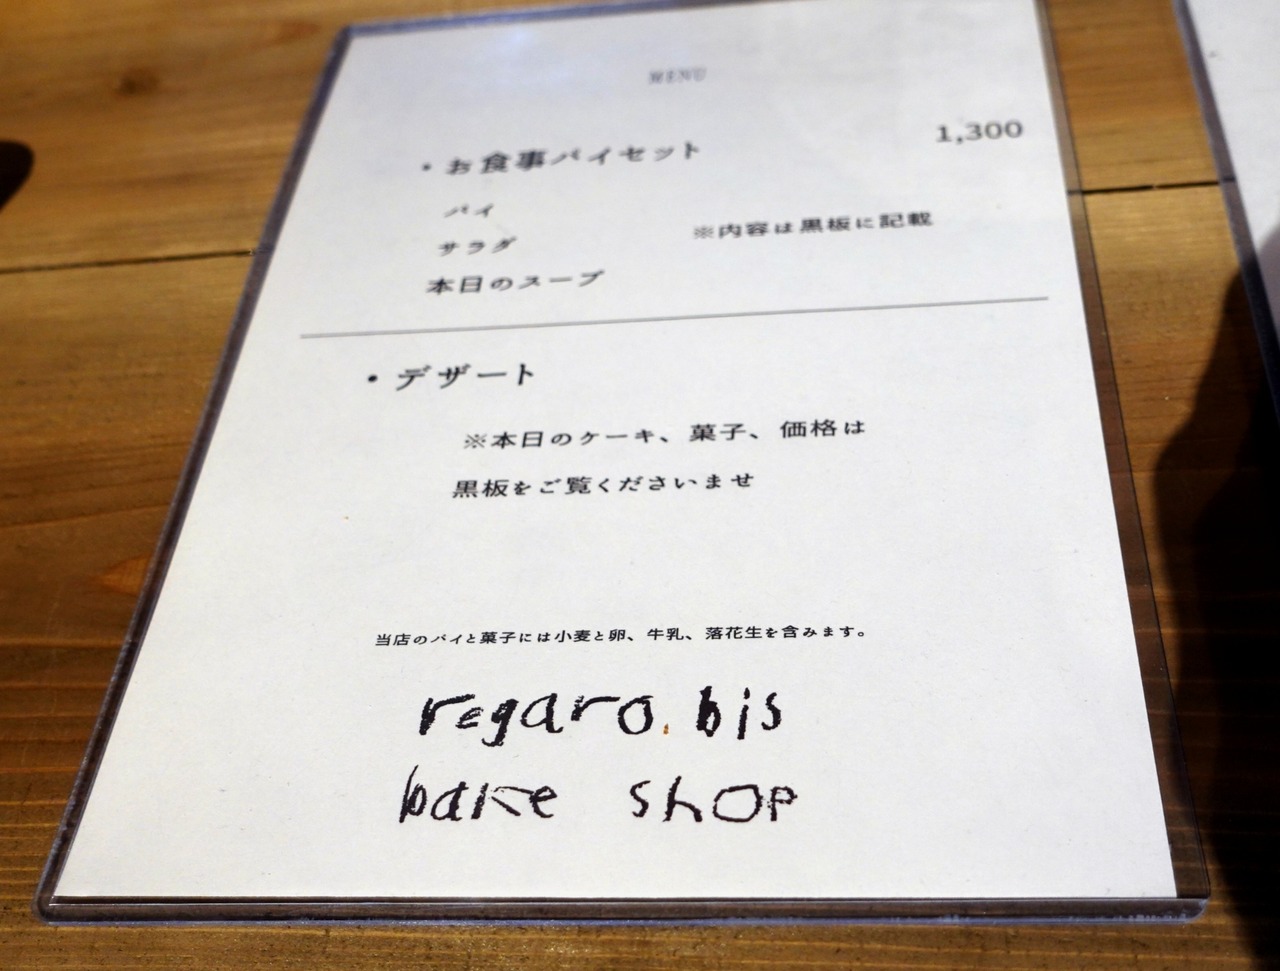 MENU
・お食事パイセット 1,300
パイ
サラダ ※内容は黒板に記載
本日のスープ
・デザート
※本日のケーキ、菓子、価格は
黒板をご覧くださいませ
当店のパイと菓子には小麦と卵、牛乳、落花生を含みます。
regaro.bis
bake shop